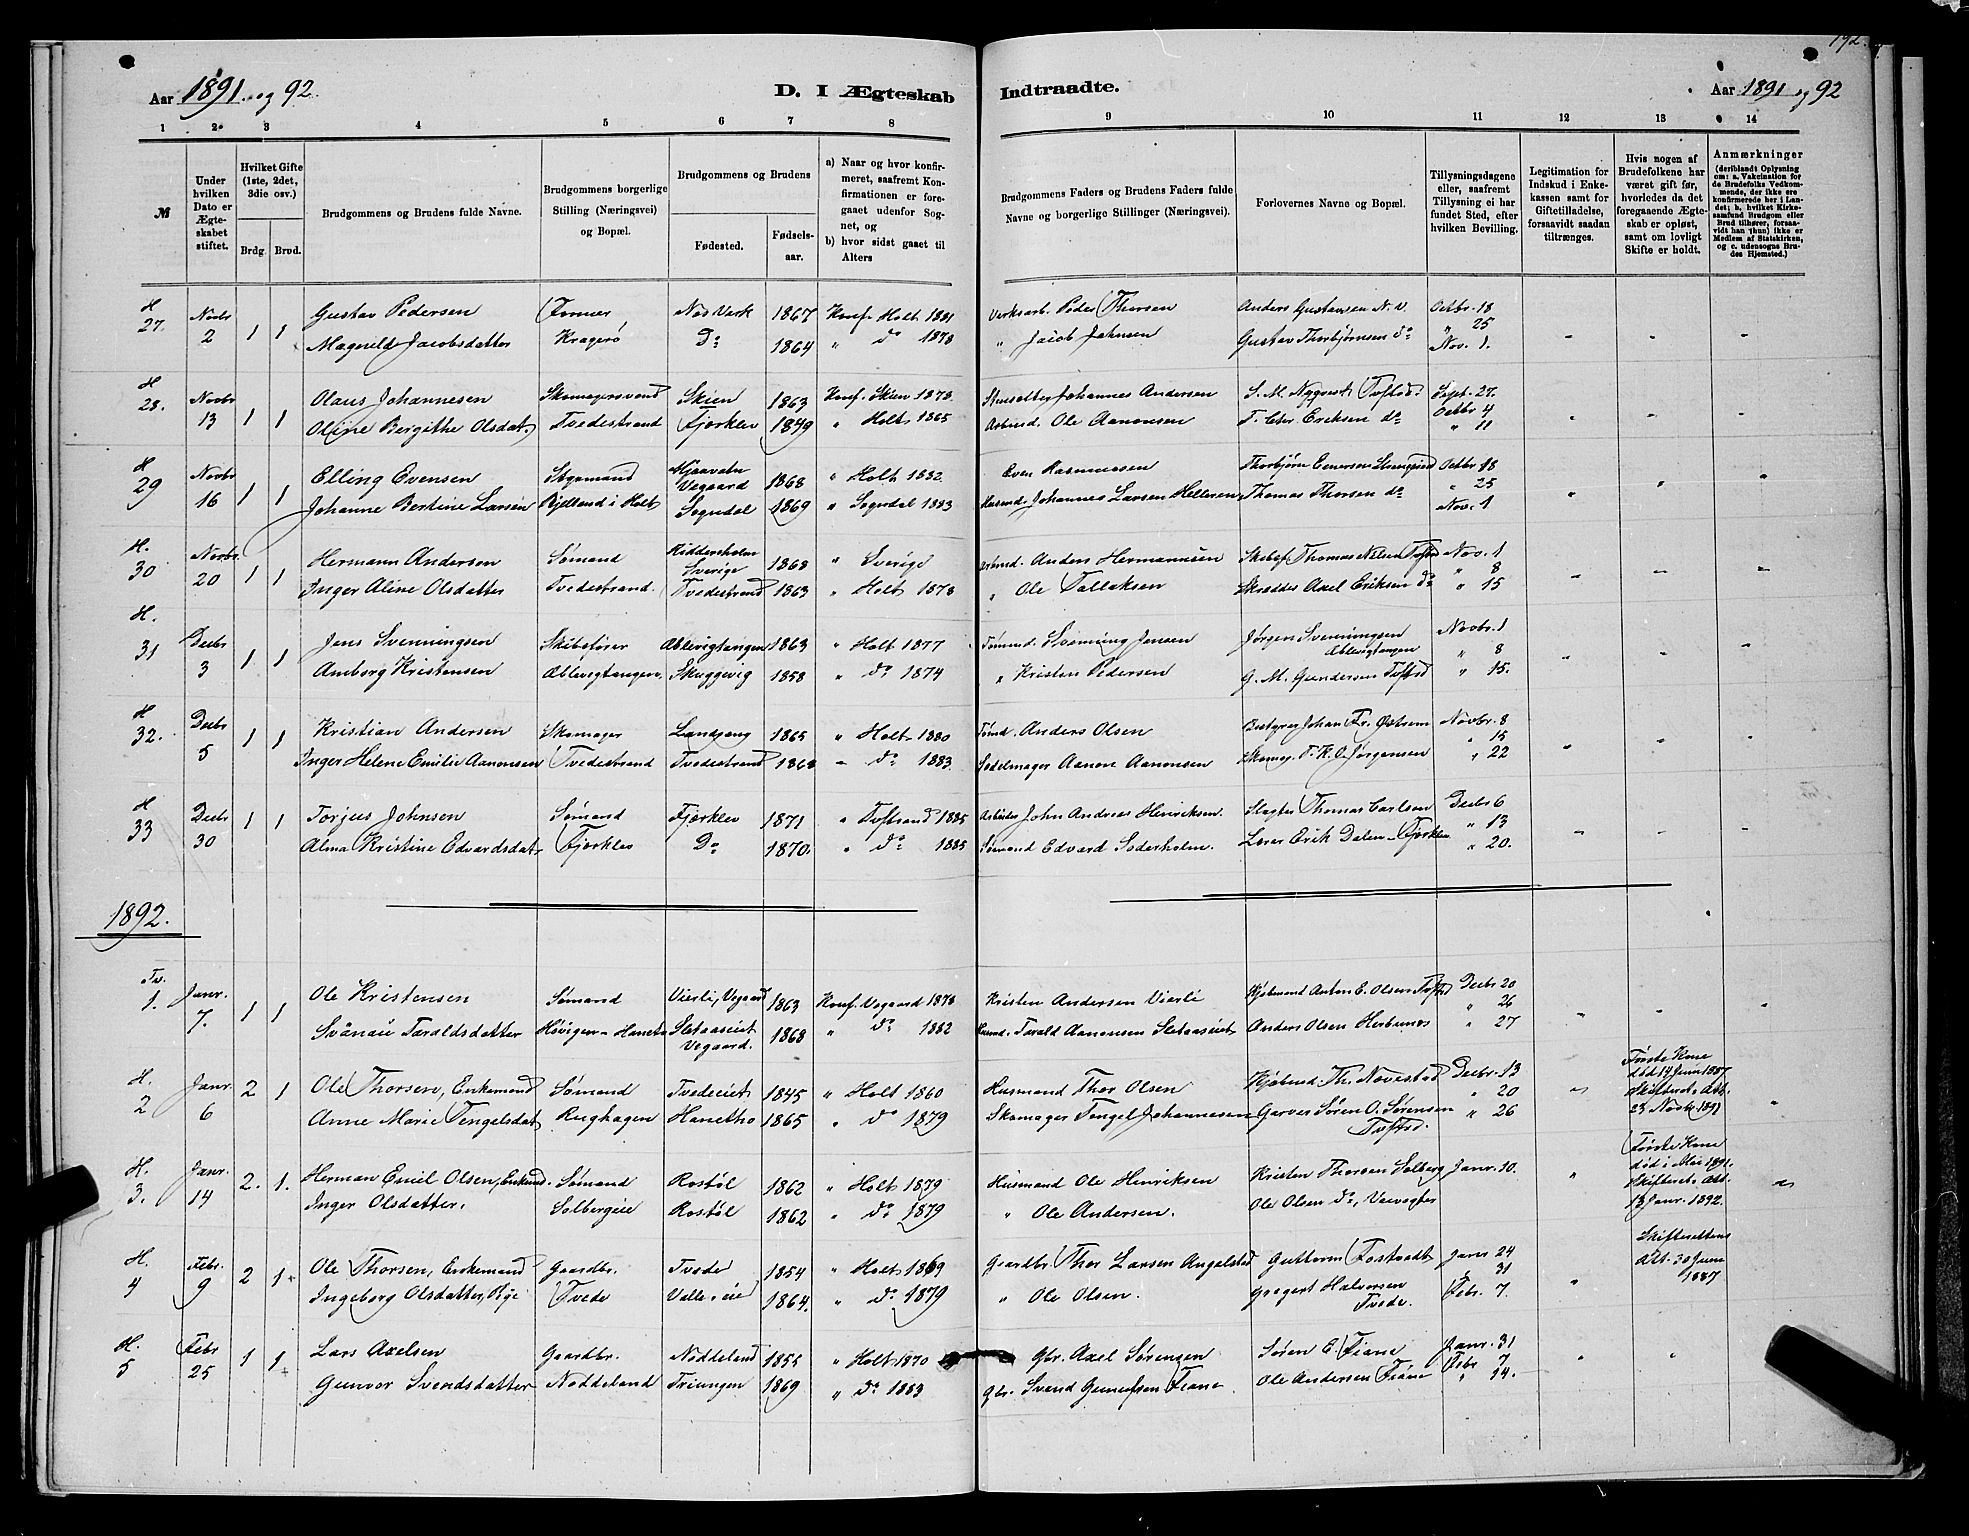 192.
Aar 1891 og 92. D. I Ægteskab Indtraadte. Aar 1891 og 92
1 2 3 4 5 6 7 8 9 10 11 12 13 14
№
Under hvilken Dato er Ægteskabet stiftet.
Hvilket Gifte (1ste, 2det, 3die osv.)
Brdg. Brud.
Brudgommens og Brudens fulde Navne.
Brudgommens borgerlige Stilling (Næringsvei) og Bopæl.
Brudgommens og Brudens
Fødested. Fødselsaar.
a) Naar og hvor konfirmeret, saafremt Konfirmationen er foregaaet udenfor Sognet, og
b) hvor sidst gaaet til Alters
Brudgommens Faders og Brudens Faders fulde Navne og borgerlige Stillinger (Næringsvei).
Forlovernes Navne og Bopæl.
Tillysningsdagene eller, saafremt Tillysning ei har fundet Sted, efter hvilken Bevilling.
Legitimation for Indskud i Enkekassen samt for Giftetilladelse, forsaavidt saadan tiltrænges.
Hvis nogen af Brudefolkene har været gift før, hvorledes da det foregaaende Ægteskab er opløst, samt om lovligt Skifte er holdt.
Anmærkninger (deriblandt Oplysning om: a. Vakcination for de Brudefolks Vedkommende, der ikke ere konfirmerede her i Landet; b. hvilket Kirkesamfund Brudgom eller Brud tilhører, forsaavidt han (hun) ikke er Medlem af Statskirken, og c. udensogns Brudes Hjemsted.)
H 27. Novbr 2 1 1 Gustav Pedersen Former Næs Verk 1867 Konf. Holt 1881 Verksarb. Peder Thorsen Anders Gustavsen N. V. Octbr. 18
Magnild Jacobsdatter Kragerø Do 1864 " do 1878 " Jacob Johnsen Gustav Thorbjørnsen do " 25 Nov. 1.
H 28. Novbr 13 1 1 Olaus Johannesen Skomagersvend Skien 1863 Konf. Skien 1878 Johannes Andersen S. M. Nyqvist Sept. 27.
Oline Bergithe Olsdat. Tvedestrand Fjærklev 1849 " Holt 1865 Arbmd. Ole Aanonsen T. Chr. Eriksen do Octbr 4 " 11
H 29 Novbr 16 1 1 Elling Evensen Vegaard 1868 " Holt 1882 Even Rasmussen Octbr 18
Johanne Bertine Larsen i Holt Sogndal 1869 " Sogndal 1883 Husmd. Johannes Larsen Helleren Thomas Thorsen do " 25 Nov. 1
H. 30 Novbr. 20 1 1 Hermann Andersen Sømand Riddersholm Sverige 1868 " Sverige Arbmd. Anders Hermannsen Skibsf. Thomas Nilsen Nov. 1
Inger Aline Olsdatter Tvedestrand. Tvedestrand 1863 " Holt 1878 " Ole Tallaksen Skrædder Axel Eriksen do " 8 " 15
H. 31 Decbr 3 1 1 Jens Svenningsen Skibsfører Ablevigtangen 1863 " Holt 1877 Tømmd. Svenning Jensen Jørgen Svenningsen Ablevigtangen Novbr. 1
Anborg Kristensen Ablevigtangen Skuggevig 1858 " do 1874 " Kristen Pedersen G. M. Gundersen " 8 " 15.
H 32. Decbr 5 1 1 Kristian Andersen Skomager Landgang 1865 " Holt 1880 Anders Olsen Bestyrer Johan Fr. Østrem Novbr. 8
Inger Helene Emilie Aanonsen Tvedestrand Tvedestrand 1868 " do 1883 Sadelmager Aanon Aanonsen Skomag. T. K. O. Jørgensen " 15 " 22
H 33 Decbr 30 1 1 Torjus Johnsen Sømand Fjærklev 1871 " 1885 Arbeider John Andreas Henriksen Slagter Thomas Carlsen Decbr 6
Alma Kristine Edvardsdat. Fjærklev Do 1870. " do 1885 Sømand Edvard Soderholm. Lærer Erik Dalen Fjærklev " 13 " 20.
1892.
Tv. 1. Janr. 7. 1 1 Ole Kristensen Sømand Vierli, Vegaard 1863 Konf. Vegaard 1878 Kristen Andersen Vierli Kjøbmand Anton E. Olsen Decbr 20
Svånau Taraldsdatter Sletaaseiet Vegaard. 1868 " do 1882 Husmd. Tarald Aanonsen Sletaaseiet Anders Olsen " 26 " 27
H. 2 Janr. 6 2 1 Ole Thorsen, Enkemand Sømand Tvedeeiet 1845 " Holt 1860 Husmand Thor Olsen Kjøbmd. Th. Novestad Decbr. 13 Første Kone død 14 Juni 1887.
Anne Marie Tengelsdat. Rughagen Hanetho 1865 " do 1879 Skomager Tengel Johannesen Garver Søren O. Sørensen " 20 " 26 Skifterets Att. 23 Novbr. 1891
H. 3. Janr. 14 2. 1. Herman Emil Olsen, Enkmd. Sømand Rostøl 1862 " Holt 1879 Husmand Ole Henriksen Kristen Thorsen Solberg Janr. 10. Første Kone død i Mai 1891.
Inger Olsdatter. Solbergeie Rostøl 1862 " do 1879 " Ole Andersen. Ole Olsen do, Veivogter Skifterets Att. 13 Janr. 1892.
H. 4 Febr. 9 2 1 Ole Thorsen, Enkemand Gaardbr. Tvede 1854 " Holt 1869 Gaardbr. Thor Larsen Angelstad Guttorm Janr 24 Skifterettens
Ingeborg Olsdatter, Tvede Valle-eie 1864. " do 1879 " Ole Olsen. Gregert Halvorsen Tvede. " 31 Febr. 7. Att. 30 Juni 1887
H. 5 Febr 25 1 1 Lars Axelsen Gaardbr. Noddeland 1855 " Holt 1870 Gbr. Axel Sørensen Søren E. Fiane Janr. 31
Gunvor Svendsdatter Noddeland Triungen 1869 " do 1883 Gbr. Svend Gunufsen Fiane Ole Andersen Fiane Febr 7 " 14.